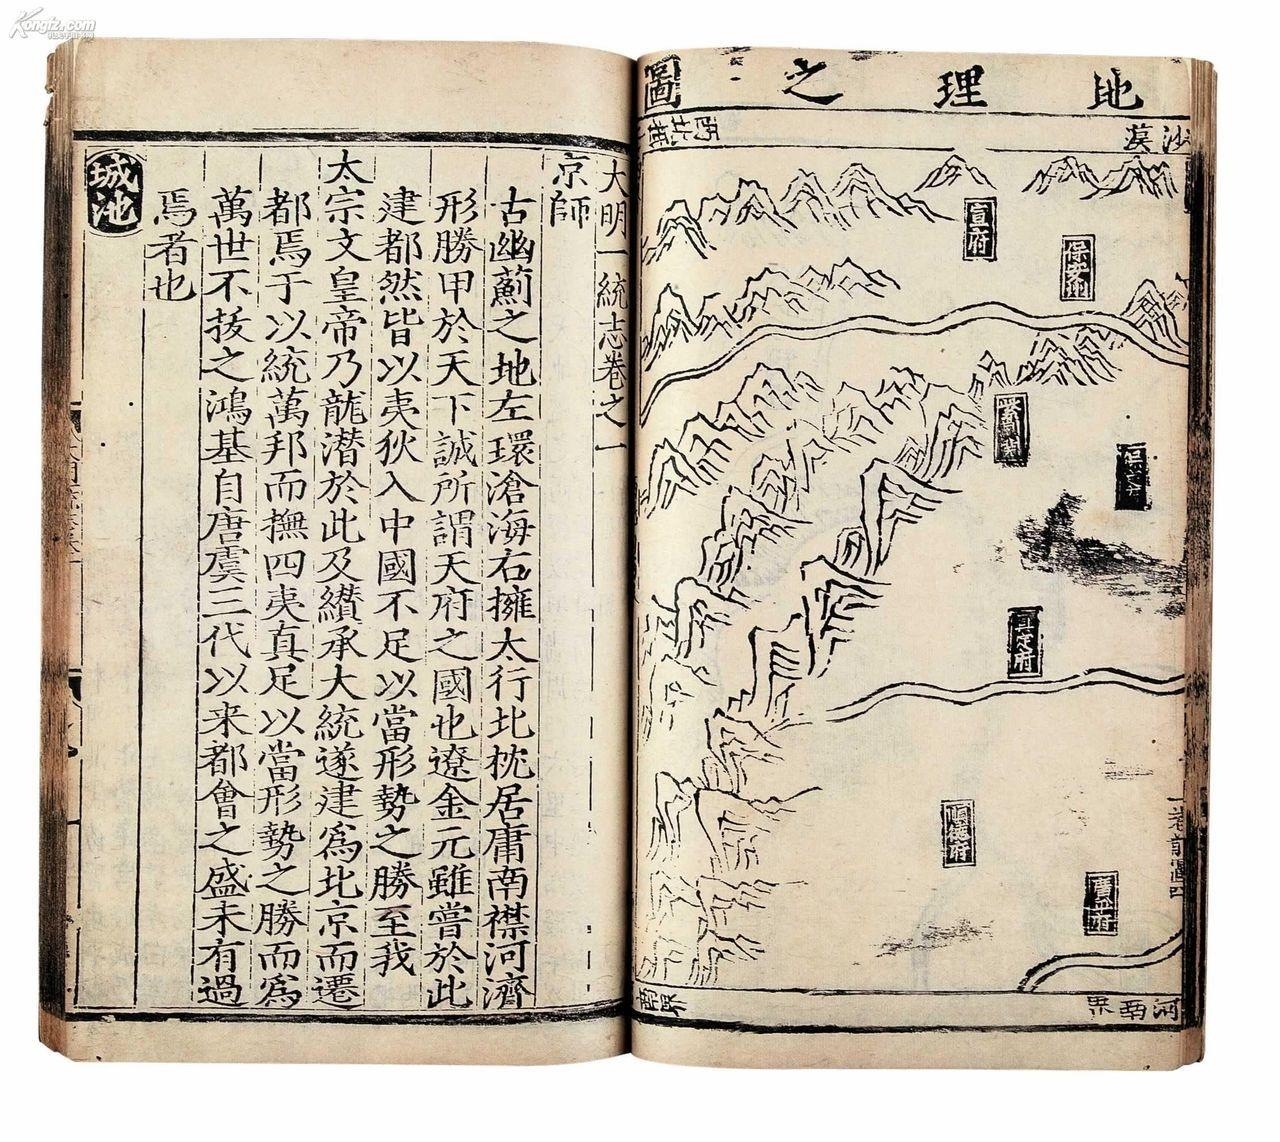 Kongfz.com
地理之圖
沙漠
宣府
保安州
紫荊關
保定府
真定府
順德府
廣平府
河南界
卷前圖四
大明一統志卷之一
京師
古幽薊之地左環滄海右擁太行北枕居庸南襟河濟
形勝甲於天下誠所謂天府之國也遼金元雖嘗於此
建都然皆以夷狄入中國不足以當形勢之勝至我
太宗文皇帝乃龍潛於此及纘承大統遂建爲北京而遷
都焉于以統萬邦而撫四夷真足以當形勢之勝而爲
萬世不拔之鴻基自唐虞三代以来都會之盛未有過
焉者也
城池